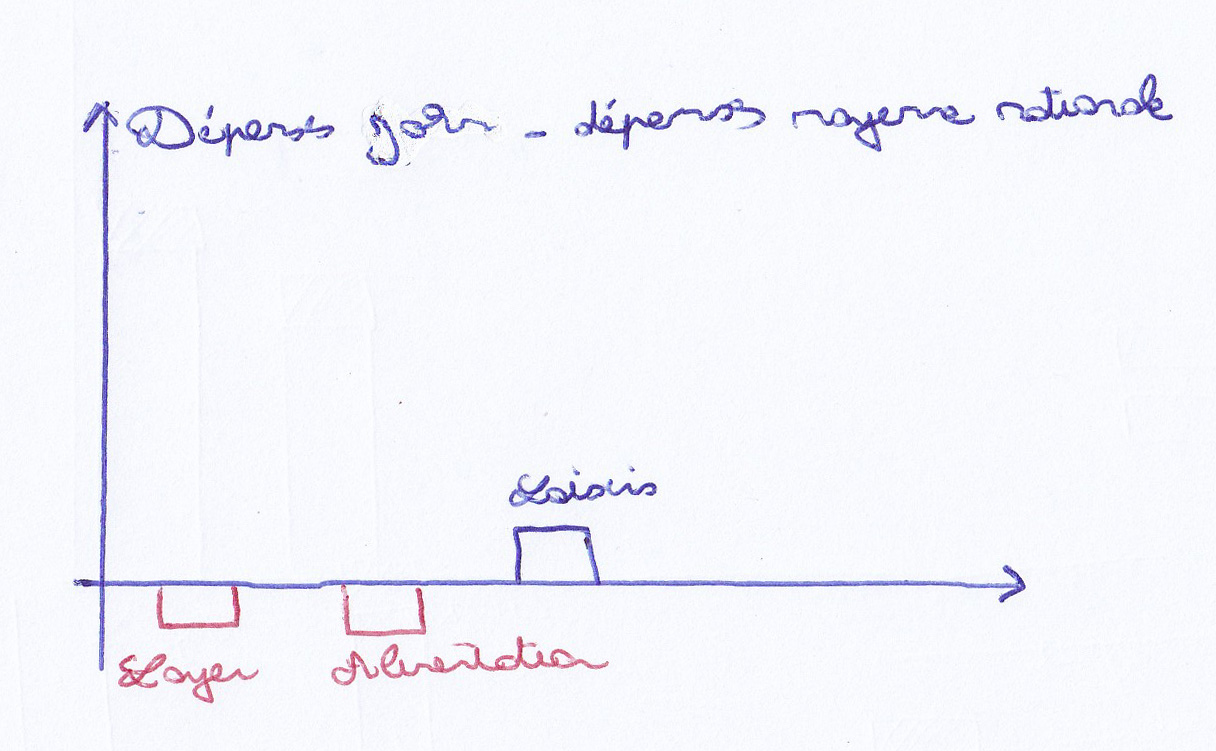 Dépenses John - dépenses moyenne nationale
Loisirs
Loyer Alimentation